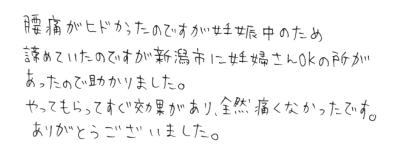 腰痛がヒドかったのですが妊娠中のため
諦めていたのですが新潟市に妊婦さんOKの所が
あったので助かりました。
やってもらってすぐ効果があり、全然痛くなかったです。
ありがとうございました。